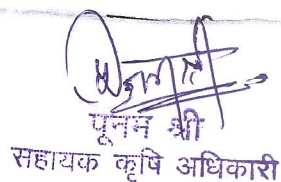 पूनम श्री
सहायक कृषि अधिकारी